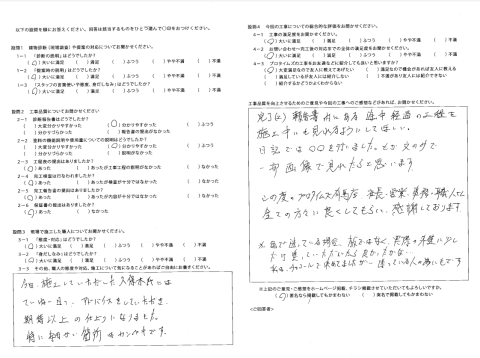 以下の設問を順にお答えください。回答は該当するものをひとつ選んで○印をおつけください。
設問1 建物診断(現場調査)や提案の対応についてお聞かせください。
1-1 「診断の説明」はどうでしたか?
(○)大いに満足 ( )満足 ( )ふつう ( )やや不満 ( )不満
1-2 「提案時の説明」はどうでしたか?
(○)大いに満足 ( )満足 ( )ふつう ( )やや不満 ( )不満
1-3 「スタッフの言葉使いや態度、身だしなみ」はどうでしたか?
(○)大いに満足 ( )満足 ( )ふつう ( )やや不満 ( )不満
設問2 工事品質についてお聞かせください。
2-1 診断報告書はどうでしたか?
( )大変分かりやすかった (○)分かりやすかった ( )ふつう
( )分かりづらかった ( )報告書の提出がなかった
2-2 塗料の機能説明や使用量についての説明はどうでしたか?
( )大変分かりやすかった (○)分かりやすかった ( )ふつう
( )分かりづらかった ( )説明がなかった
2-3 工程表の提出はありましたか?
(○)あった ( )あったが工事工程の説明がなかった ( )なかった
2-4 完工検査は行なわれましたか?
(○)あった ( )あったが検査が十分ではなかった ( )なかった
2-5 完工報告書の提出はありましたか?
(○)あった ( )あったが内容が十分ではなかった ( )なかった
2-6 保証書の提出はありましたか?
(○)あった ( )なかった
設問3 現場で施工した職人についてお聞かせください。
3-1 「態度・対応」はどうでしたか?
(○)大いに満足 ( )満足 ( )ふつう ( )やや不満 ( )不満
3-2 「身だしなみ」はどうでしたか?
(○)大いに満足 ( )満足 ( )ふつう ( )やや不満 ( )不満
3-3 その他、職人の態度や対応、施工について気になることがあればご自由にお書きください。
今回、施工していただいた久保木氏には
ていねい且つ、アドバイスをしていただき、
期待以上の仕上りになりました。
特に細かい箇所は
設問4 今回の工事についての総合的な評価をお聞かせください。
4-1 工事の満足度をお聞かせください。
(○)大いに満足 ( )満足 ( )ふつう ( )やや不満 ( )不満
4-2 お問い合わせ~完工後の対応までの全体の満足度をお聞かせください。
(○)大いに満足 ( )満足 ( )ふつう ( )やや不満 ( )不満
4-3 プロタイムズの工事をお友達などに紹介しても良いと思いますか?
(○)大変満足なので友人に教えてあげたい ( )満足なので機会があれば友人に教える
( )満足しているが友人には紹介しない ( )不満があり友人には紹介できない
( )紹介するかどうかよくわからない
工事品質を向上させるためのご意見や今回の工事へのご感想などがあれば、お聞かせください。
完了(に)報告書内にある途中経過の工程を
施工中にも見れるようにしてほしい。
日記では○○を行いました。とか文ので
一部画像で見れたらと思います。
この度のプロタイムズ 社長・営業、事務・職人さん
全ての方々に良くしてもらい、感謝しております
※色で迷っている場合、
※上記のご意見・ご感想をホームページ掲載、チラシ掲載させていただいてもよろしいですか。
(○)匿名なら掲載してもかまわない ( )実名で掲載してもかまわない
<ご回答者>